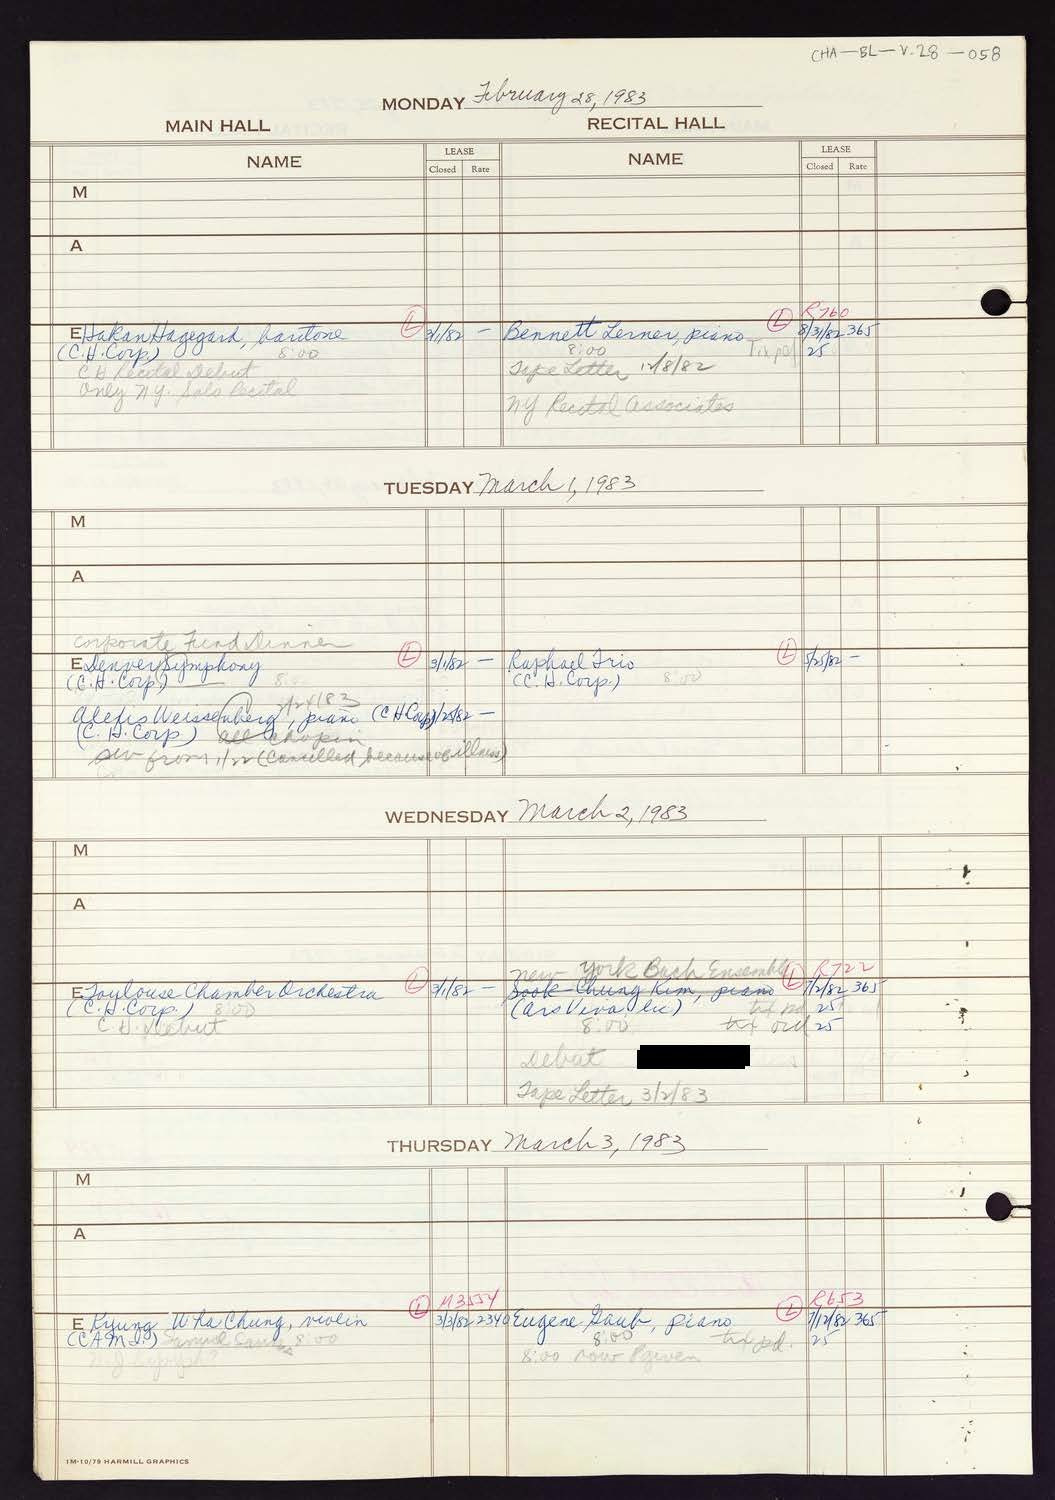 CHA-BL-V.28-058
MONDAY February 28, 1983
MAIN HALL
RECITAL HALL
NAME
LEASE
Closed Rate
NAME
LEASE
Closed Rate
M
A
E Hakan Hagegard, baritone (L) 3/1/82 -
(C.H. Corp.) 8:00
CH Recital Debut
Only N.Y. Solo Recital
R760
Bennett Lerner, piano (L) 8/31/82 365
8:00 Tix pd 25
Tape Letter 11/8/82
NY Recital Associates
TUESDAY March 1, 1983
M
A
Corporate Fund Dinner
E Denver Symphony (L) 3/1/82 -
(C.H. Corp.) 8:
2/24/83
Alexis Weissenberg, piano (CH Corp) /25/82 -
(C.H. Corp) all Chopin
from 1/22 (Cancelled because of illness)
Raphael Trio (L) 5/25/82 -
(C.H. Corp.) 8:00
WEDNESDAY March 2, 1983
M
A
E Toulouse Chamber Orchestra (L) 3/1/82 -
(C.H. Corp.) 8:00
C.H. Debut
New York Bach Ensemble (L) R722
Sook-Chung Kim, piano 7/2/82 365
(Ars Viva) tix pd 25
8:00 tix ord 25
Debut
Tape Letter 3/2/83
THURSDAY March 3, 1983
M
A
(L) M3554
E Kyung Wha Chung, violin 3/3/82 2340
(CAMI) Samuel Sanders 8:00
(L) R653
Eugene Gaub, piano 7/12/82 365
8:00 tix pd. 25
8:00 now
1M-10/79 HARMILL GRAPHICS